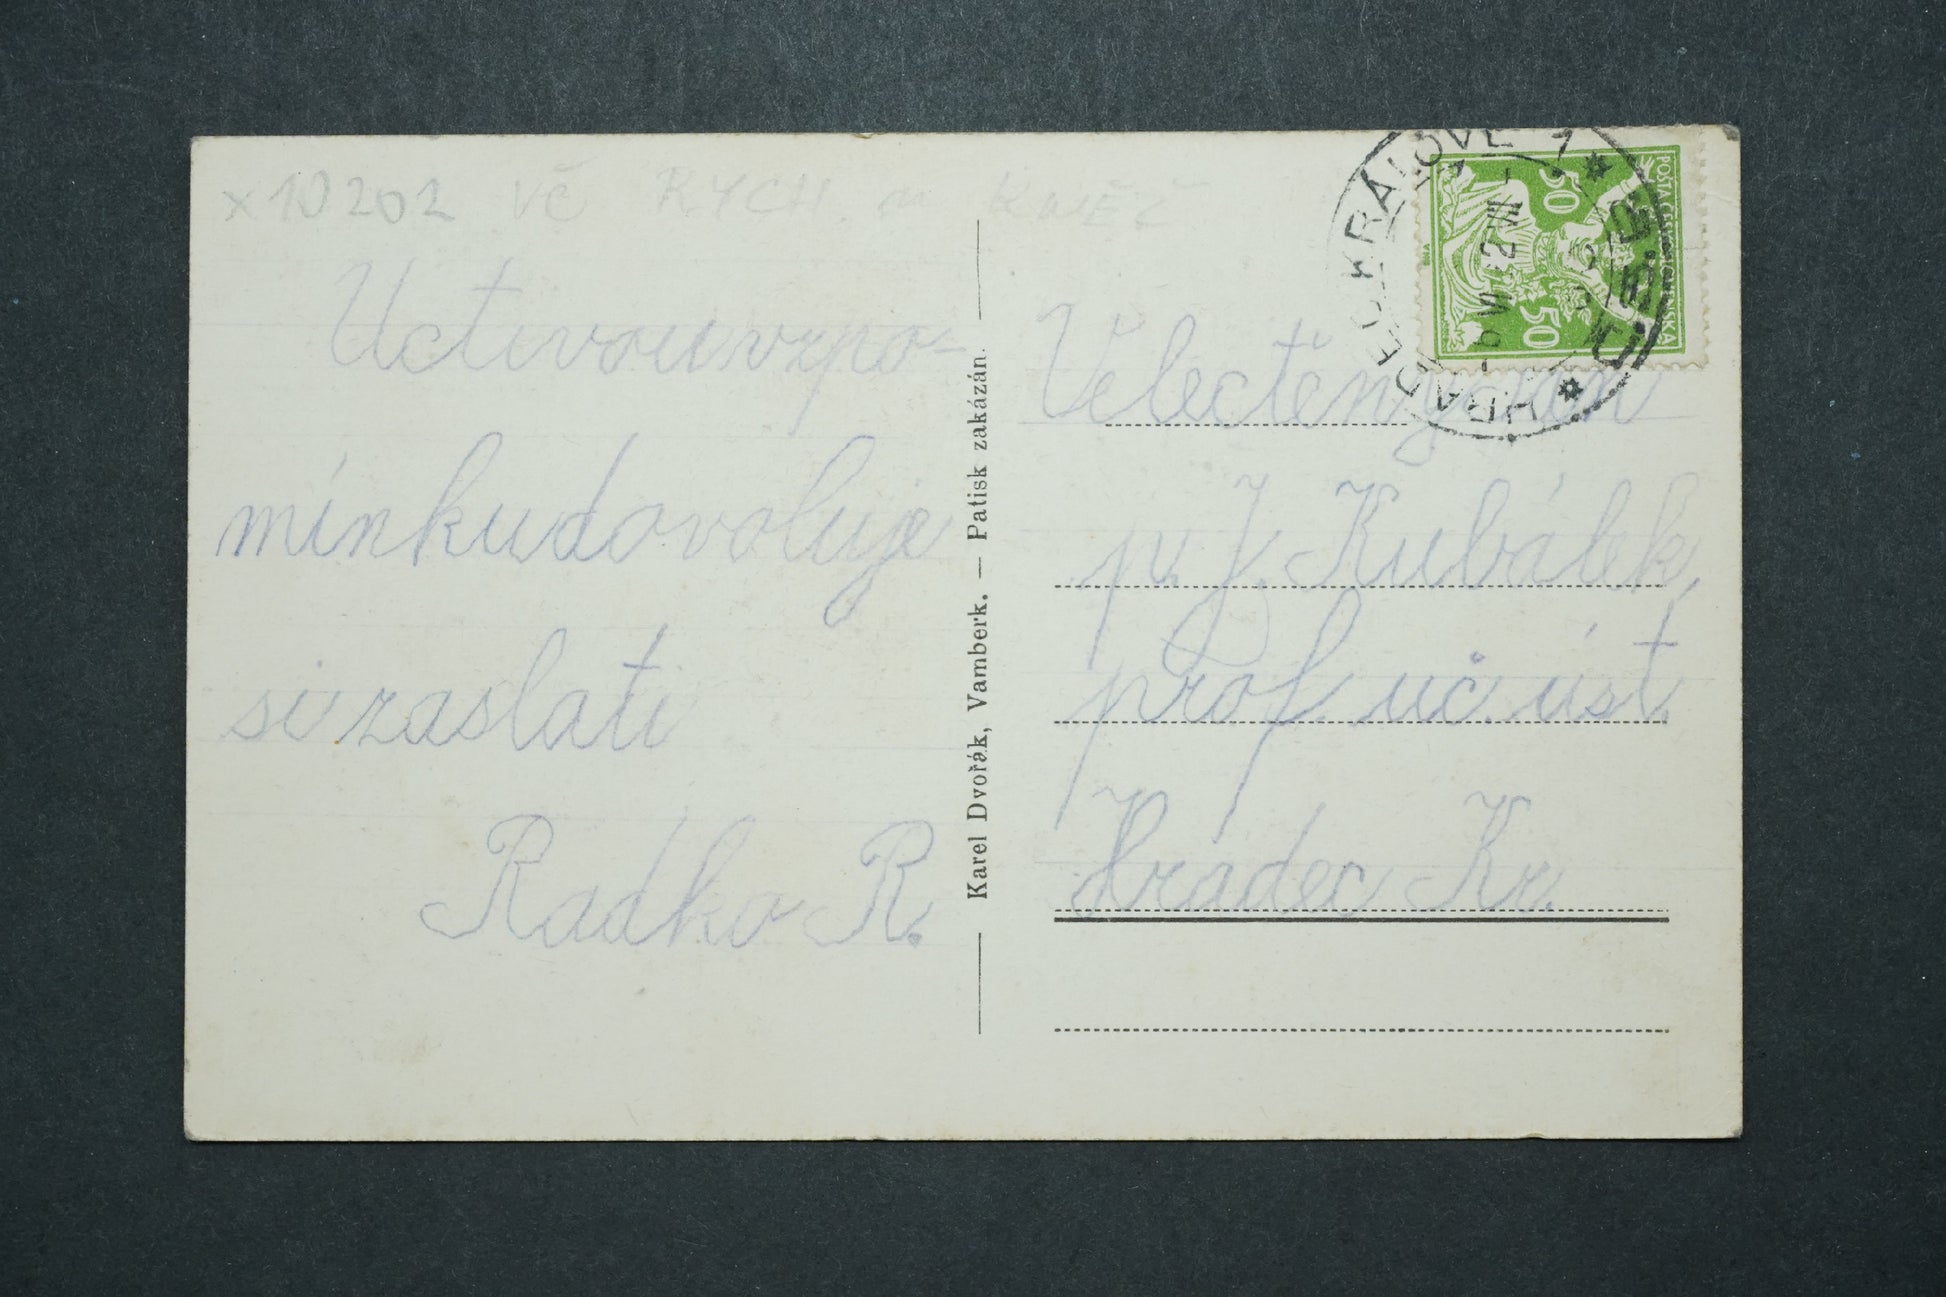 x 10202 VČ RYCH. n KNĚŽ
Uctivou vzpo-
mínku dovoluje
si zaslati
Radko R.
Karel Dvořák, Vamberk. — Patisk zakázán.
HRADEC KRÁLOVÉ 1
POŠTA ČESKOSLOVENSKÁ
50 50
Velectěný pán
p. J. Kubálek,
prof. uč. úst.
Hradec Kr.